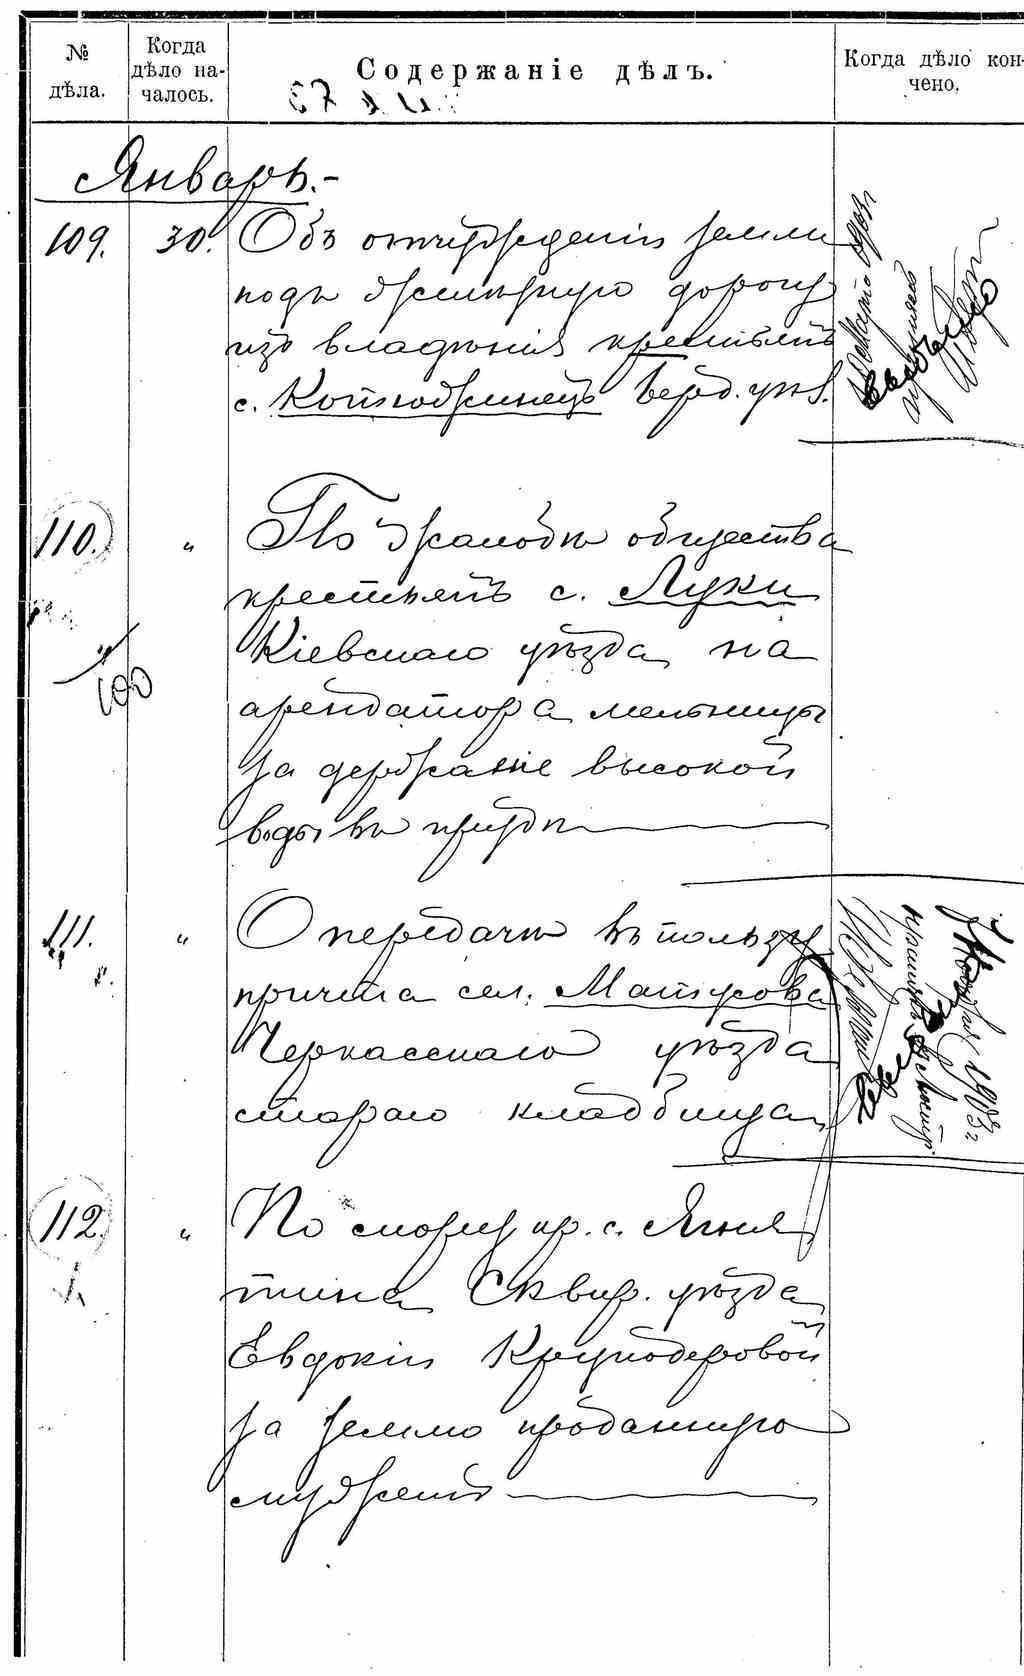 №
дѣла.
Когда
дѣло на-
чалось.
Содержаніе дѣлъ.
Когда дѣло кон-
чено.
Январь.-
109. 30. Объ отчужденіи земли
подъ желѣзную дорогу
изъ владѣнія крестьянъ
с. Котюжинецъ Берд. уѣз.
110. " По жалобѣ общества
крестьянъ с. Луки
Кіевскаго уѣзда на
арендатора мельницы
за держаніе высокой
воды въ прудѣ
100
111. " О передачѣ въ пользу
причта сел. Матусова
Черкасскаго уѣзда
стараго кладбища
1903 г
112. " По спору кр. с. Ягня
тина Сквир. уѣзда
Евдокіи Круподеровой
за землю проданную
мужемъ